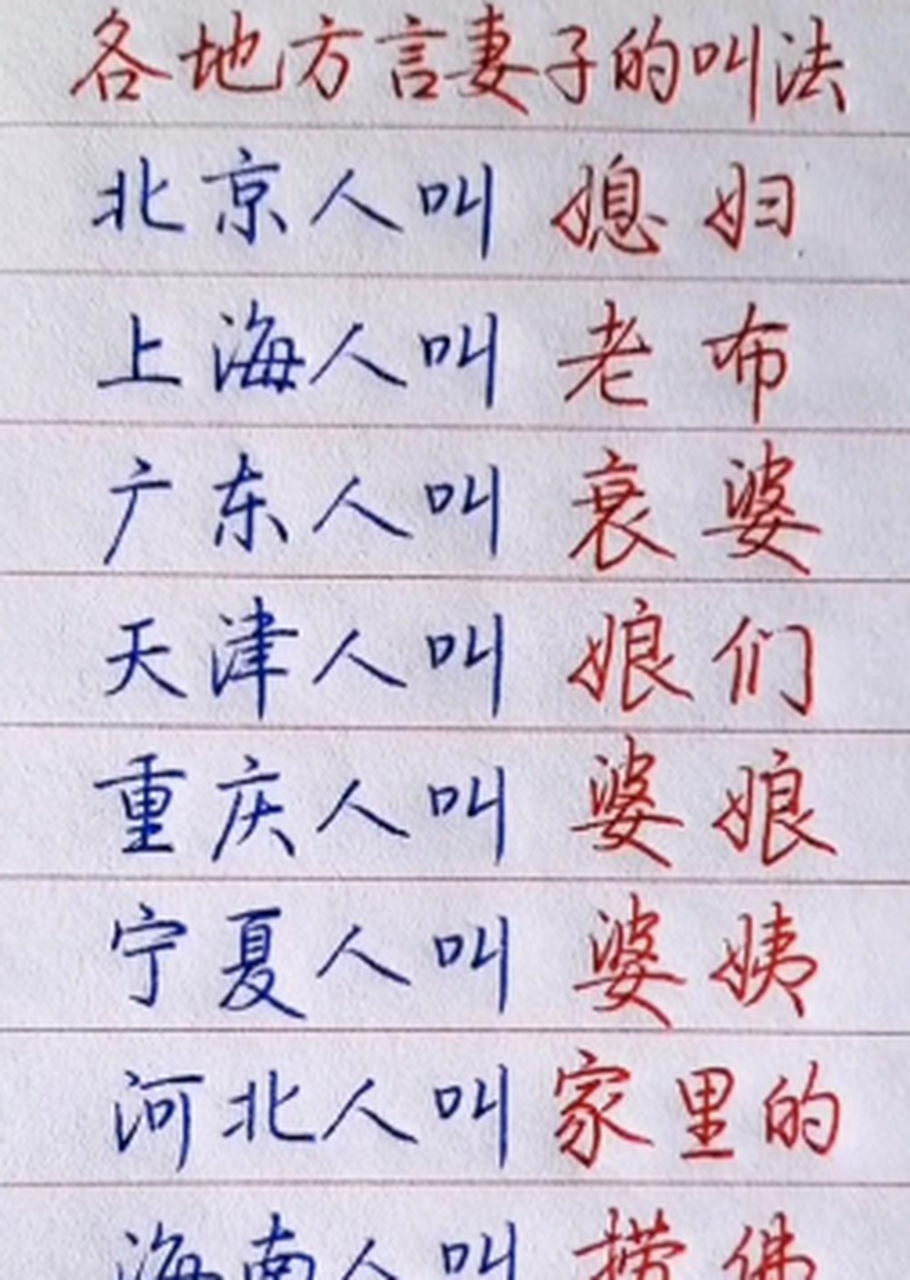 各地方言妻子的叫法
北京人叫 媳妇
上海人叫 老布
广东人叫 衰婆
天津人叫 娘们
重庆人叫 婆娘
宁夏人叫 婆姨
河北人叫 家里的
海南人叫 捞佛